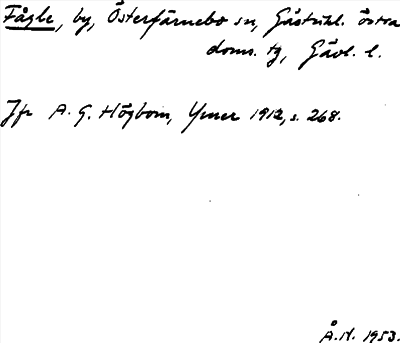 Fågle, by, Österfärnebo sn, Gästrikl. östra
doms. tg, Gävl. l.
Jfr A. G. Högbom, Ymer 1912, s. 268.
Å.N. 1953.